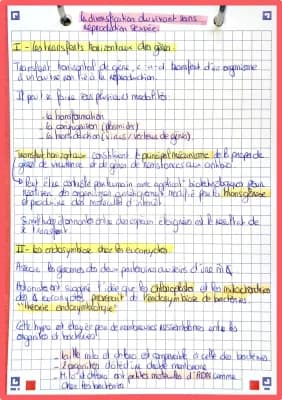 La diversification du vivant sans
reproduction sexuée
I - Les transferts horizontaux des gènes
Transfert horizontal de gène, c-à-d transfert d'un organisme
à un autre non lié à la reproduction.
Il peut se faire sous plusieurs modalités :
- la transformation
- la conjugaison (plasmides)
- la transduction (virus / vecteurs de gènes).
Transferts horizontaux constituent le principal mécanisme de la propagation de
gènes de virulence et de gènes de résistances aux antibio.
Peut être contrôlé par humain avec applicat° biotechnologiques pour
création des organismes génétiquement modifié par la transgénèse
et produire des molécules d'intérêt.
Similitudes d'annotées entre des espèces éloignées est le résultat de
le transfert.
II - Les endosymbioses chez les eucaryotes
Associe les génomes de deux partenaires au sein d'une m̂
suggère l'idée que les chloroplastes et les mitochondries
des eucaryotes proviennent de l'endosymbiose de bactéries
"théorie endosymbiotique"
Cette hypo est étayée par de nombreuses ressemblances entre les
organites et bactéries :
- la taille mito et chloro est comparable à celle des bactéries
- L'organites dotées d'une double membrane
- Mito et chloro ont petites molécules d'ADN comme
chez les bactéries